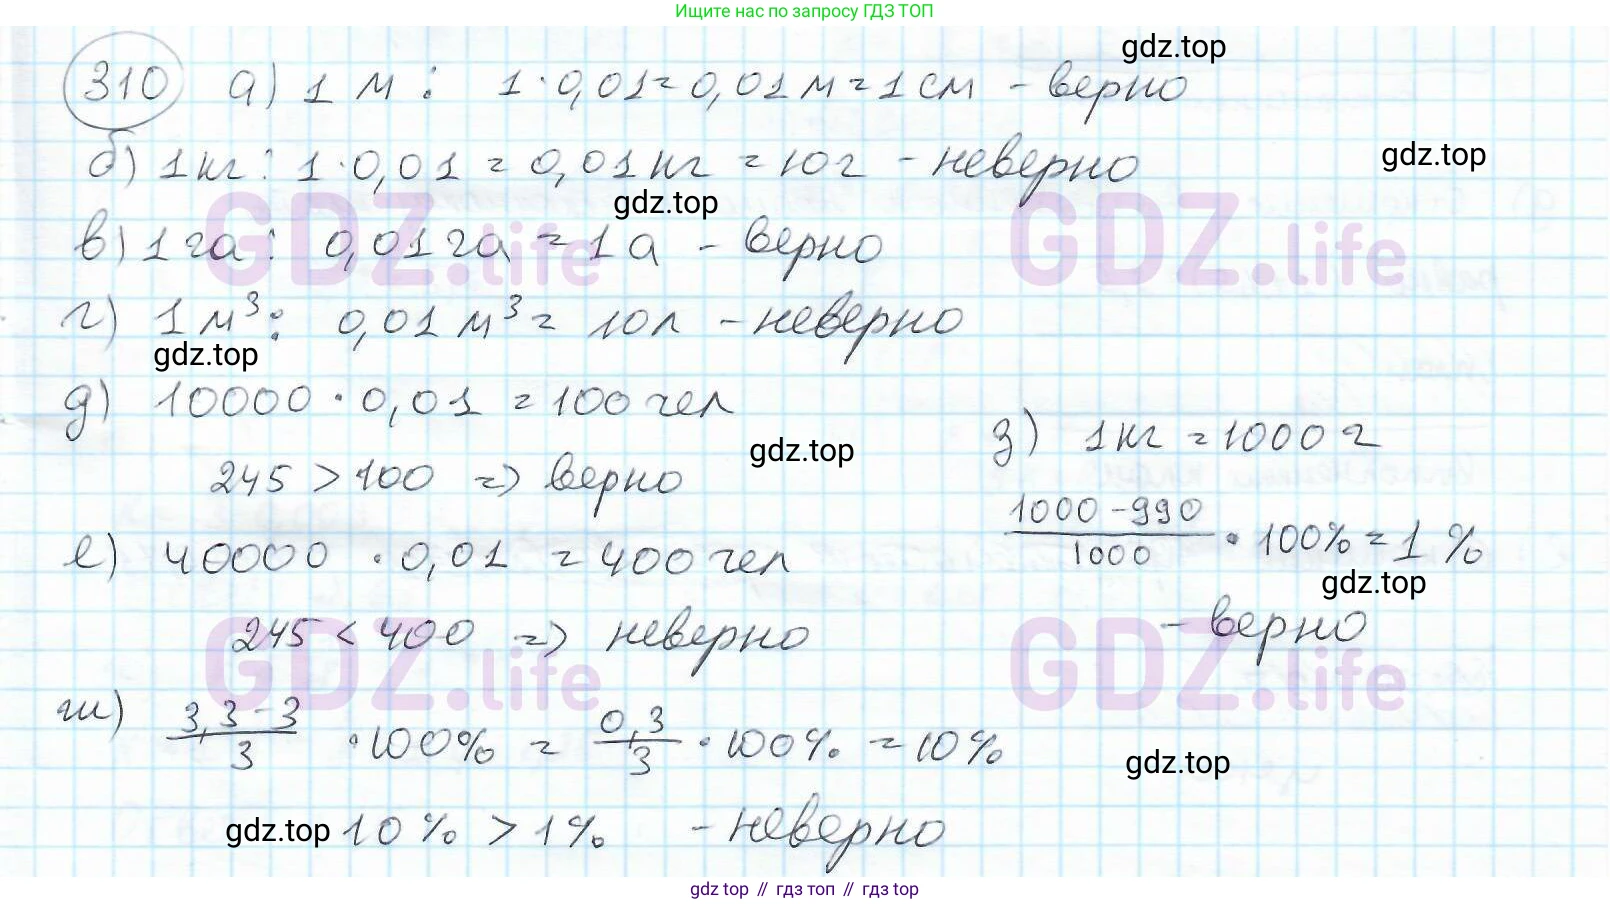 Ищите нас по запросу ГДЗ ТОП
gdz.top
310 а) 1 м : 1 · 0,01 = 0,01 м = 1 см - верно
б) 1 кг : 1 · 0,01 = 0,01 кг = 10 г - неверно
gdz.top
gdz.top
GDZ.life GDZ.life
в) 1 га : 0,01 га = 1 а - верно
г) 1 м³ : 0,01 м³ = 10 л - неверно
gdz.top
д) 10000 · 0,01 = 100 чел
245 > 100 => верно
gdz.top
е) 40000 · 0,01 = 400 чел
245 < 400 => неверно
GDZ.life GDZ.life
ж) 3,3 - 3 / 3 · 100% = 0,3 / 3 · 100% = 10%
gdz.top 10% > 1% - неверно
з) 1 кг = 1000 г
1000 - 990 / 1000 · 100% = 1 %
gdz.top
- верно
gdz.top
gdz top // гдз топ // gdz top